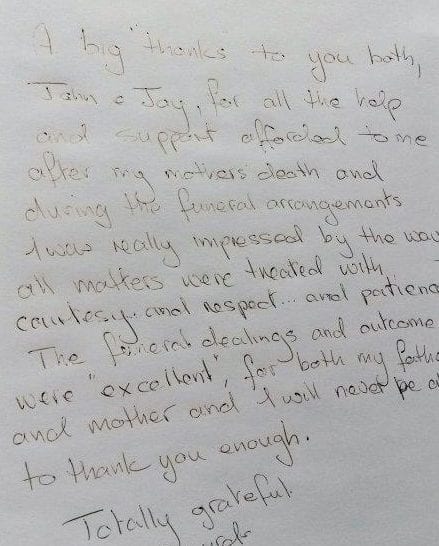 A big "thanks to you both,
John & Jay, for all the help
and support afforded to me
after my mothers death and
during the funeral arrangements
I was really impressed by the way
all matters were treated with,
courtesy. and respect... and patienc
The funeral dealings and outcome
were "excellent", for both my fathe
and mother and I will never be a
to thank you enough.
Totally grateful.